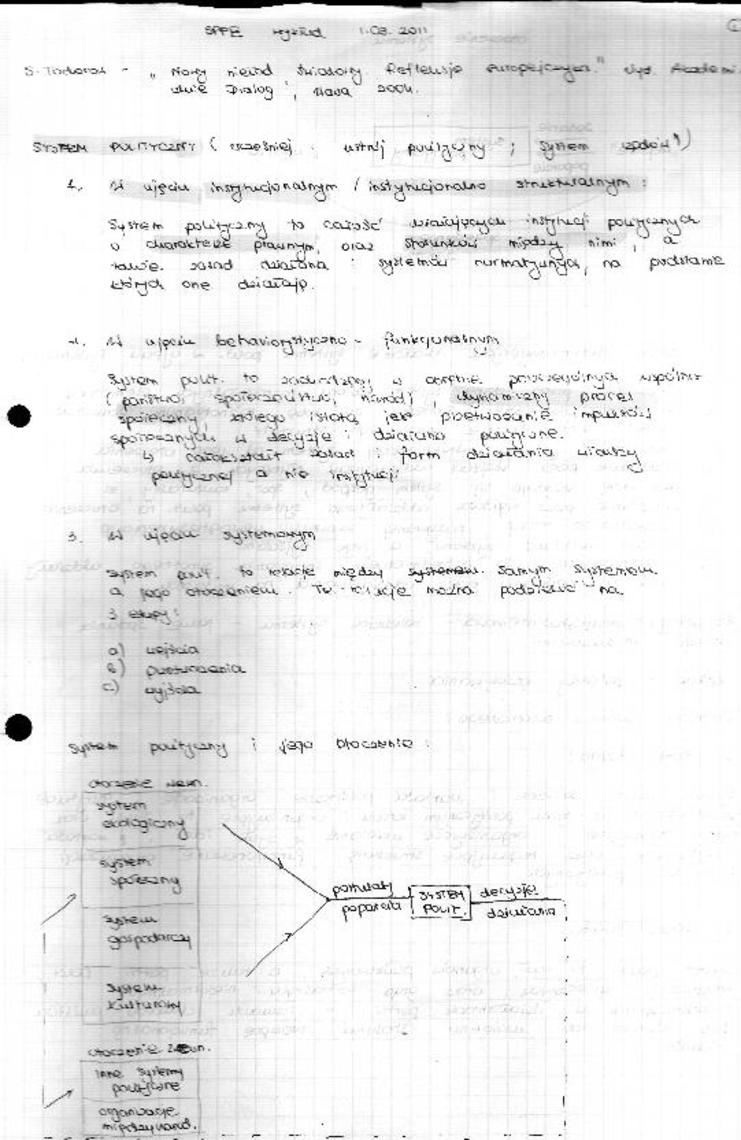 SPPE wykład 1.03.2011
S. Todorov - "Nowy nieład światowy. Refleksje Europejczyka." Wyd. Akademi
ckie Dialog, W-awa 2004.
SYSTEM POLITYCZNY (wcześniej: ustrój polityczny; system rządów)
1. W ujęciu instytucjonalnym / instytucjonalno strukturalnym:
System polityczny to całość działających instytucji politycznych
o charakterze prawnym, oraz stosunków między nimi, a
także zasad działania i systemów normatywnych, na podstawie
których one działają.
2. W ujęciu behawiorystyczno - funkcjonalnym
System polit. to zachodzący w obrębie poszczególnych wspólnot
(państwo, społeczeństwo, naród), dynamiczny proces
społeczny, którego istotą jest przetwarzanie impulsów
społecznych w decyzje i działania polityczne.
całokształt zasad i form działania władzy
politycznej a nie instytucji
3. W ujęciu systemowym
System polit. to relacje między systemem samym systemem
a jego otoczeniem. Te relacje można podzielić na
3 etapy:
a) wejścia
b) przetworzenia
c) wyjścia
System polityczny i jego otoczenie:
otoczenie wewn.
system
ekologiczny
system
społeczny
system
gospodarczy
system
kulturowy
postulaty
poparcia
SYSTEM
POLIT.
decyzje
działania
otoczenie zewn.
inne systemy
polityczne
organizacje
międzynarod.